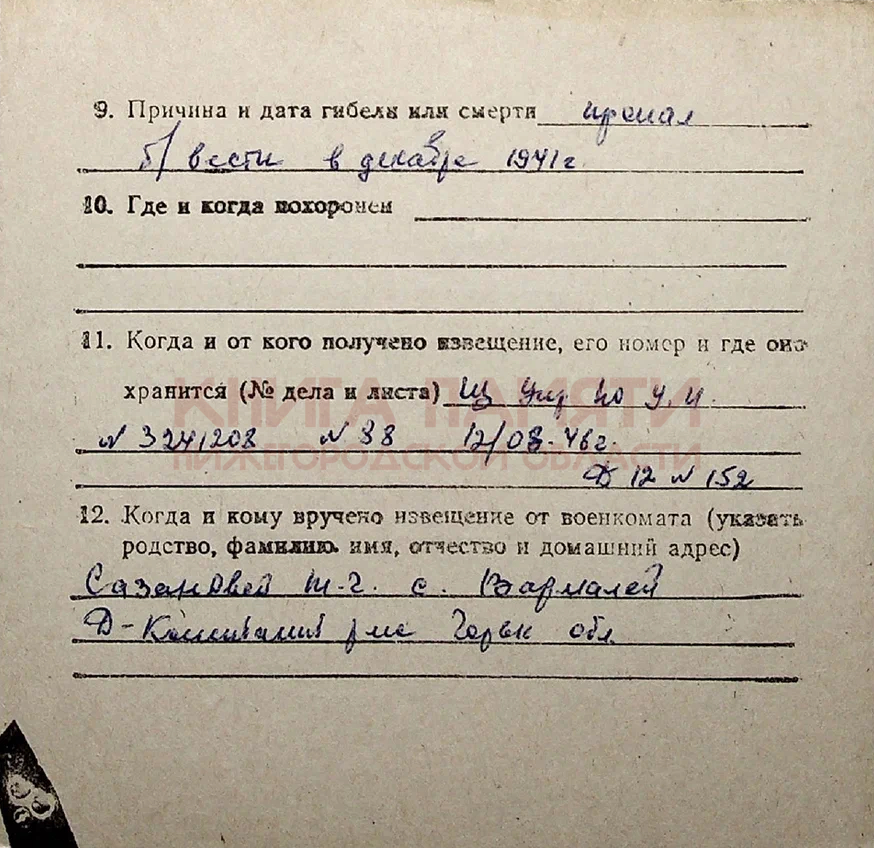 9. Причина и дата гибели или смерти пропал
б/вести в декабре 1941 г.
10. Где и когда похоронен
11. Когда и от кого получено извещение, его номер и где оно
хранится (№ дела и листа) Из Упр по У.И.
КНИГА ПАМЯТИ
N 3241208 N 88 12/08-46 г.
НИЖЕГОРОДСКОЙ ОБЛАСТИ
Д 12 N 152
12. Когда и кому вручено извещение от военкомата (указать
родство, фамилию, имя, отчество и домашний адрес)
Сазановой с. Вармалей
Д-Константинов Горьк обл.